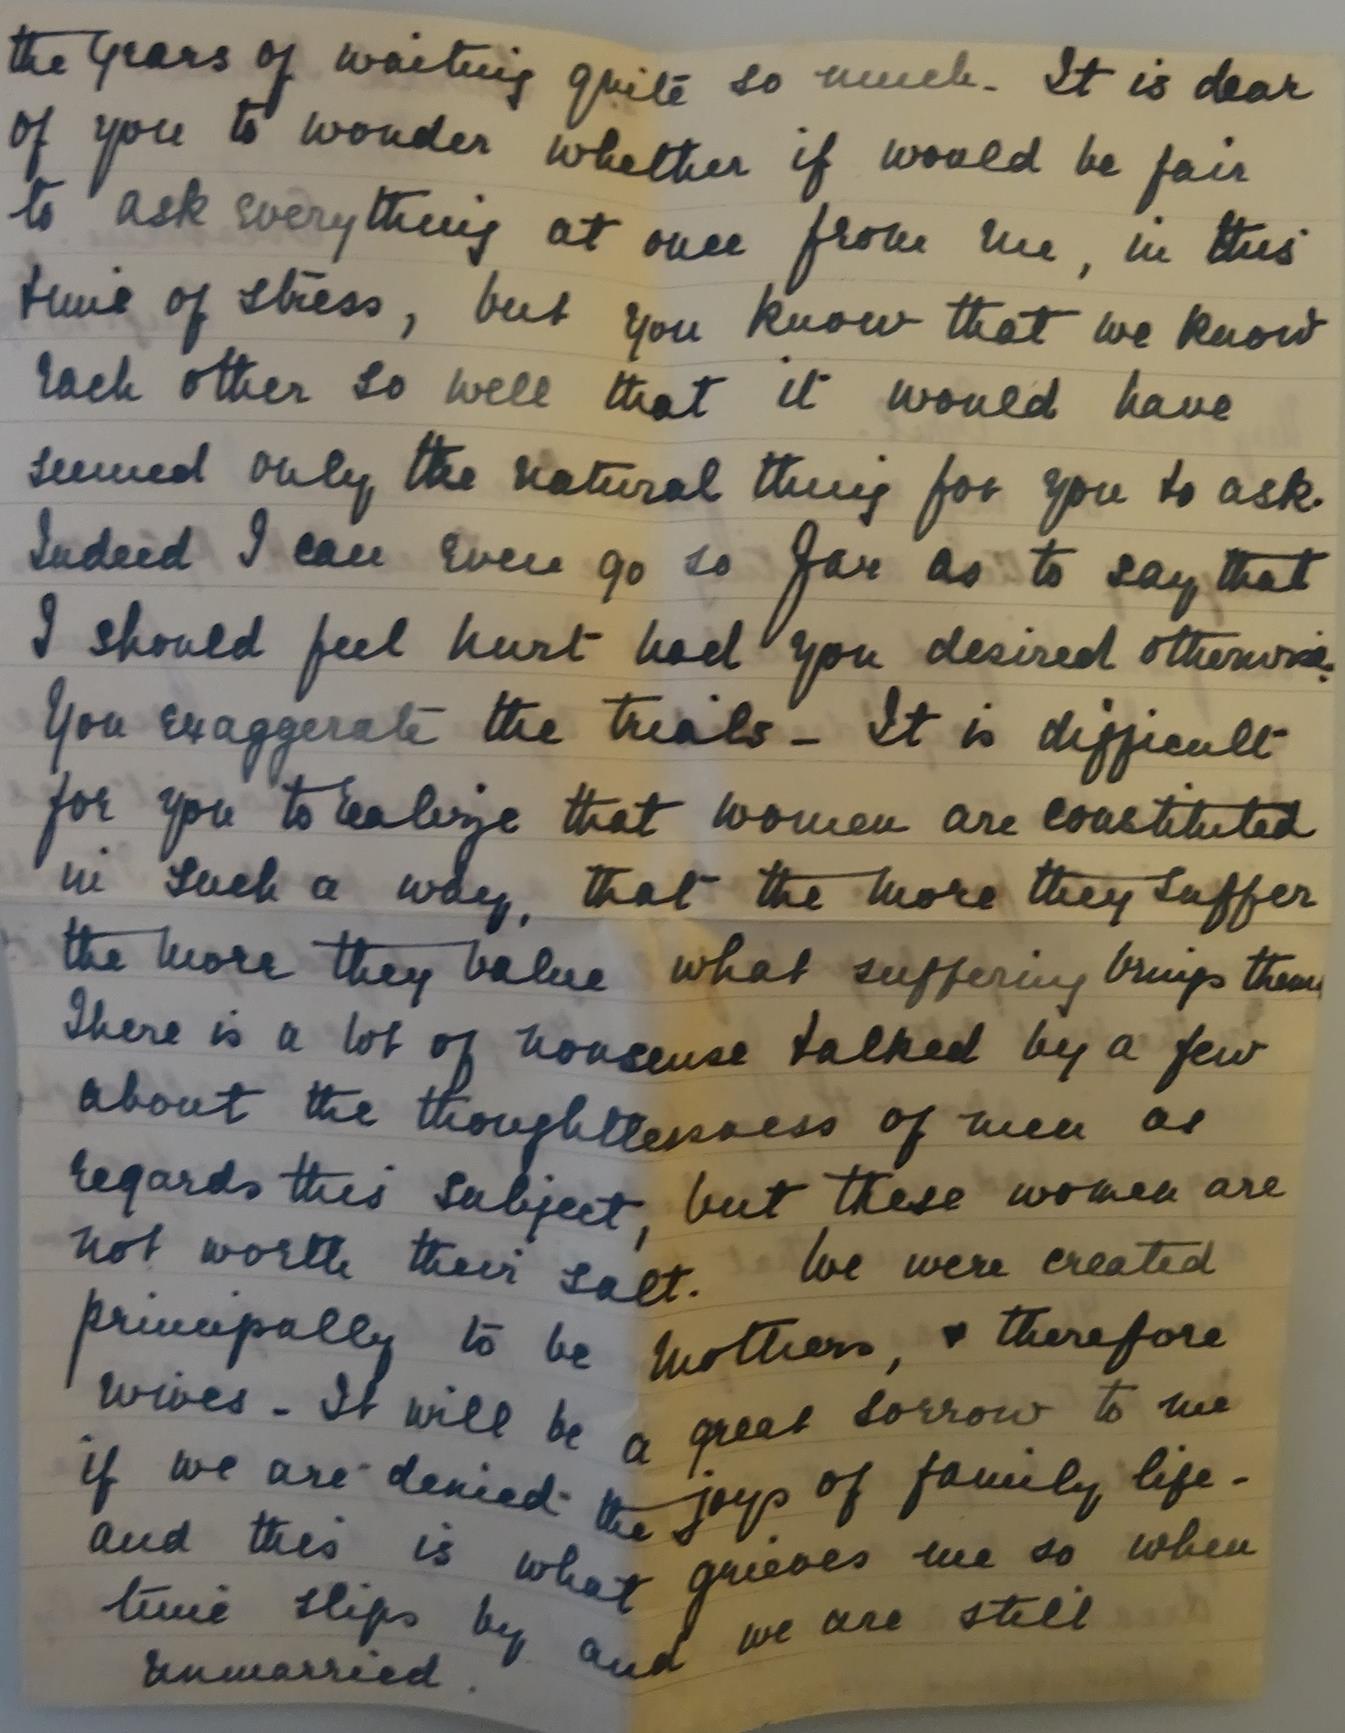 the years of waiting quite so much - It is dear
of you to wonder whether if would be fair
to ask everything at once from me, in this
time of stress, but you know that we know
each other so well that it would have
seemed only the natural thing for you to ask.
Indeed I can even go so far as to say that
I should feel hurt had you desired otherwise.
You exaggerate the trials - It is difficult
for you to realize that women are constituted
in such a way, that the more they suffer
the more they value what suffering brings them
There is a lot of nonsense talked by a few
about the thoughtlessness of men as
regards this subject, but these women are
not worth their salt. We were created
principally to be mothers, & therefore
wives - It will be a great sorrow to me
if we are denied the joys of family life -
and this is what grieves me so when
time slips by and we are still
unmarried.